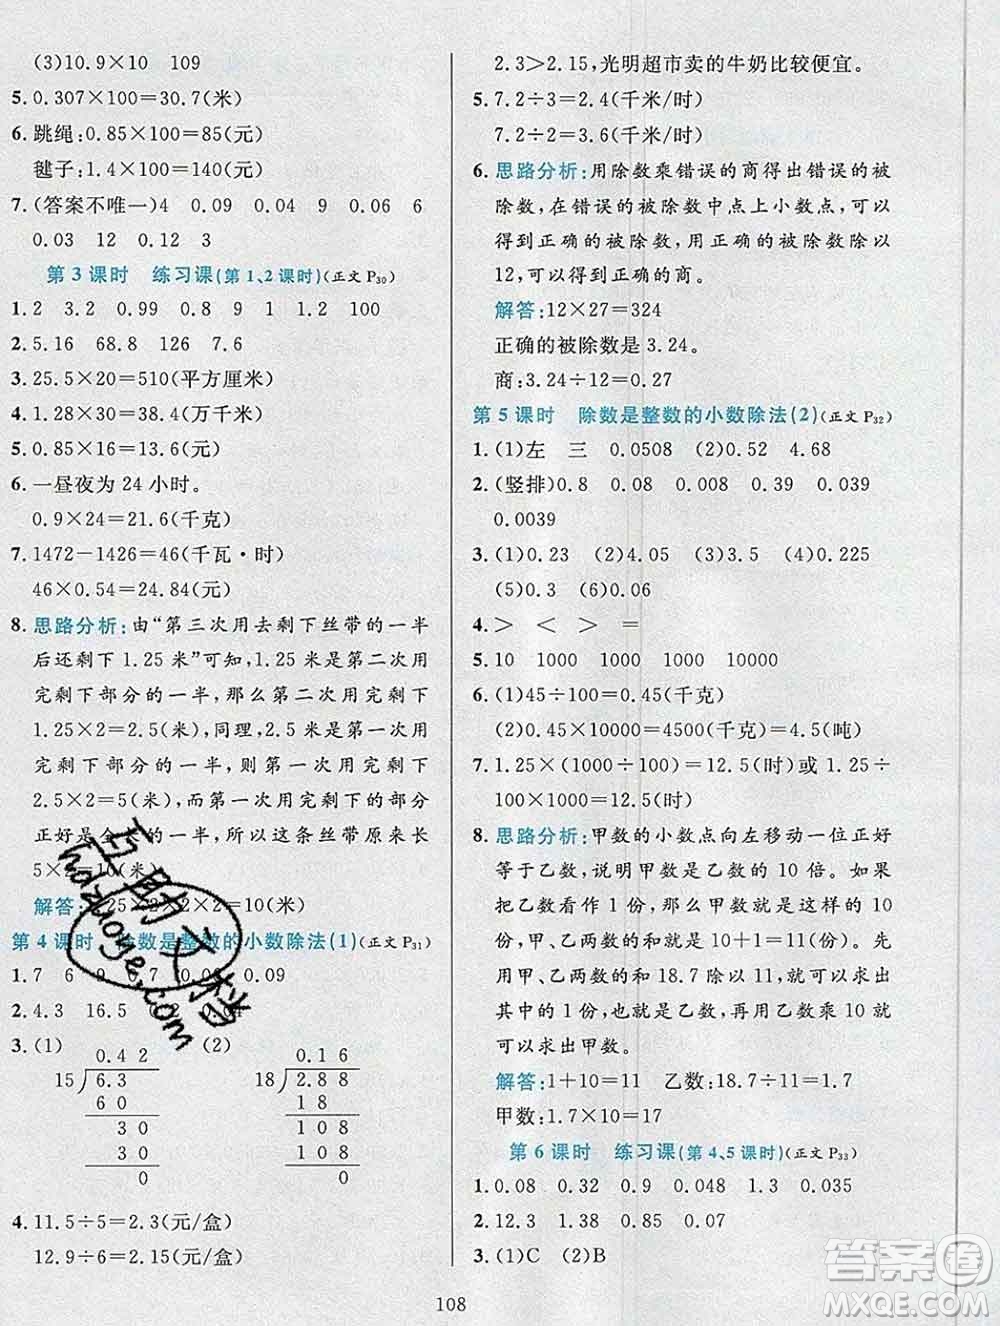 (3)10.9×10 109
5. 0.307×100=30.7(米)
6. 跳绳:0.85×100=85(元)
毽子:1.4×100=140(元)
7. (答案不唯一)4 0.09 0.9 9 0.06 6
0.03 12 0.12 3
第3课时 练习课(第1、2课时)(正文P30)
1. 2 3.2 0.99 0.8 9 1 1.2 100
2. 5.16 68.8 126 7.6
3. 25.5×20=510(平方厘米)
4. 1.28×30=38.4(万千米)
5. 0.85×16=13.6(元)
6. 一昼夜为24小时。
0.9×24=21.6(千克)
7. 1472-1426=46(千瓦·时)
46×0.54=24.84(元)
8. 思路分析:由“第三次用去剩下丝带的一半
后还剩下1.25米”可知,1.25米是第二次用
完剩下部分的一半,那么第二次用完剩下
1.25×2=2.5(米),同理,2.5米是第一次用
完剩下部分的一半,那么第一次用完剩下
2.5×2=5(米),而第一次用完剩下的部分
正好是全长的一半,所以这条丝带原来长
5×2=10(米)。
解答:1.25×2×2×2=10(米)
第4课时 除数是整数的小数除法(1)(正文P31)
1. 7 6 9 0.7 0.08 0.09
2. 4.3 16.5 0.04
3. (1) (2)
0.42 0.16
15 6.3 18 2.88
60 18
30 108
30 108
0 0
4. 11.5÷5=2.3(元/盒)
12.9÷6=2.15(元/盒)
2.3>2.15,光明超市卖的牛奶比较便宜。
5. 7.2÷3=2.4(千米/时)
7.2÷2=3.6(千米/时)
6. 思路分析:用除数乘错误的商得出错误的被
除数,在错误的被除数中点上小数点,可以
得到正确的被除数,用正确的被除数除以
12,可以得到正确的商。
解答:12×27=324
正确的被除数是3.24。
商:3.24÷12=0.27
第5课时 除数是整数的小数除法(2)(正文P32)
1. (1)左 三 0.0508 (2)0.52 4.68
2. (竖排)0.8 0.08 0.008 0.39 0.039
0.0039
3. (1)0.23 (2)4.05 (3)3.5 (4)0.225
(5)0.3 (6)0.06
4. > < > =
5. 10 1000 1000 1000 10000
6. (1)45÷100=0.45(千克)
(2)0.45×10000=4500(千克)=4.5(吨)
7. 1.25×(1000÷100)=12.5(时)或1.25÷
100×1000=12.5(时)
8. 思路分析:甲数的小数点向左移动一位正好
等于乙数,说明甲数是乙数的10倍。如果
把乙数看作1份,那么甲数就是这样的10
份,甲、乙两数的和就是10+1=11(份)。先
用甲、乙两数的和18.7除以11,可以求出
其中的1份,也就是乙数,再用乙数乘10可
以求出甲数。
解答:1+10=11 乙数:18.7÷11=1.7
甲数:1.7×10=17
第6课时 练习课(第4、5课时)(正文P33)
1. 0.08 0.32 0.052 1.3 0.035
2. 12.3 1.38 0.85 0.07
3. (1)C (2)B
108
互助文档
hezuoge.com
答案圈
MXQE.COM